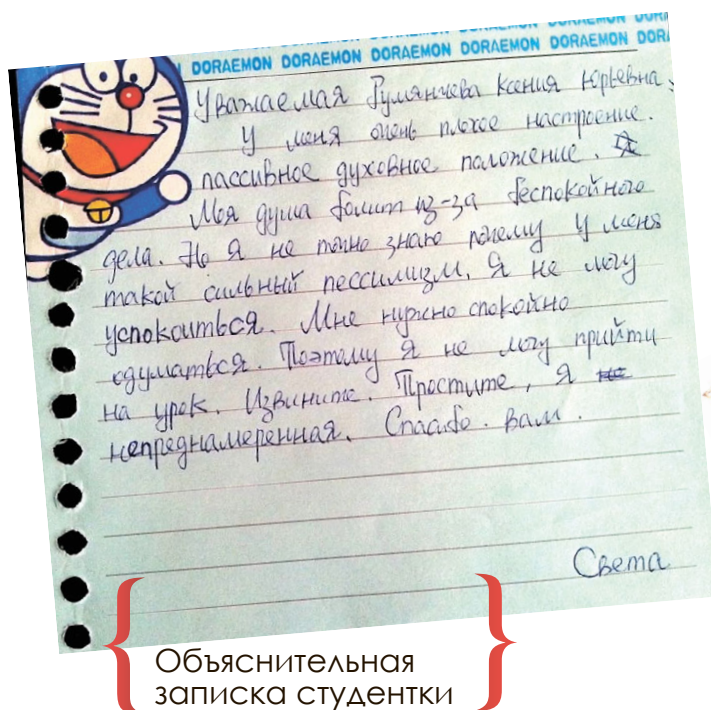 DORAEMON DORAEMON DORAEMON DORAEMON DORAEMON
Уважаемая Румянчева Ксения Юрьевна,
У меня очень плохое настроение.
пассивное духовное положение. Я
Моя душа болит из-за беспокойного
дела. Но Я не точно знаю почему у меня
такой сильный пессимизм. Я не могу
успокоиться. Мне нужно спокойно
одуматься. Поэтому Я не могу прийти
на урок. Извините. Простите, Я не
непреднамеренная. Спасибо. вам.
Света
Объяснительная
записка студентки